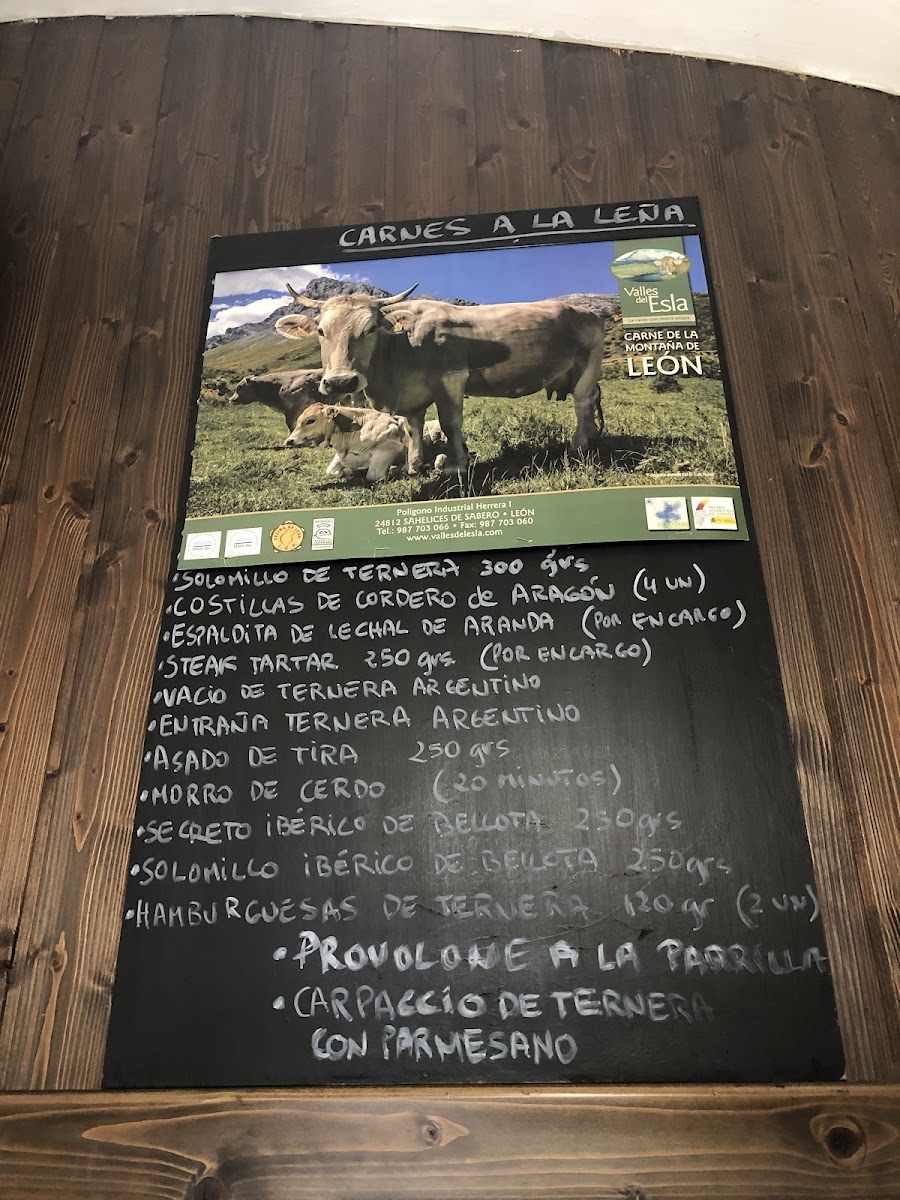 CARNES A LA LEÑA
Valles
del Esla
CARNE DE LA
MONTAÑA DE
LEÓN
Polígono Industrial Herrera I
24812 SAHELICES DE SABERO • LEÓN
Tel.: 987 703 066 • Fax: 987 703 060
www.vallesdelesla.com
•SOLOMILLO DE TERNERA 300 grs
•COSTILLAS DE CORDERO de ARAGÓN (4 UN)
•ESPALDITA DE LECHAL DE ARANDA (POR ENCARGO)
•STEAK TARTAR 250 grs. (POR ENCARGO)
•VACIO DE TERNERA ARGENTINO
•ENTRAÑA TERNERA ARGENTINO
•ASADO DE TIRA 250 grs
•MORRO DE CERDO (20 MINUTOS)
•SECRETO IBÉRICO DE BELLOTA 250grs
•SOLOMILLO IBÉRICO DE BELLOTA 250grs
•HAMBURGUESAS DE TERNERA 120 gr (2 UN)
•PROVOLONE A LA PARRILLA
•CARPACCIO DE TERNERA
CON PARMESANO